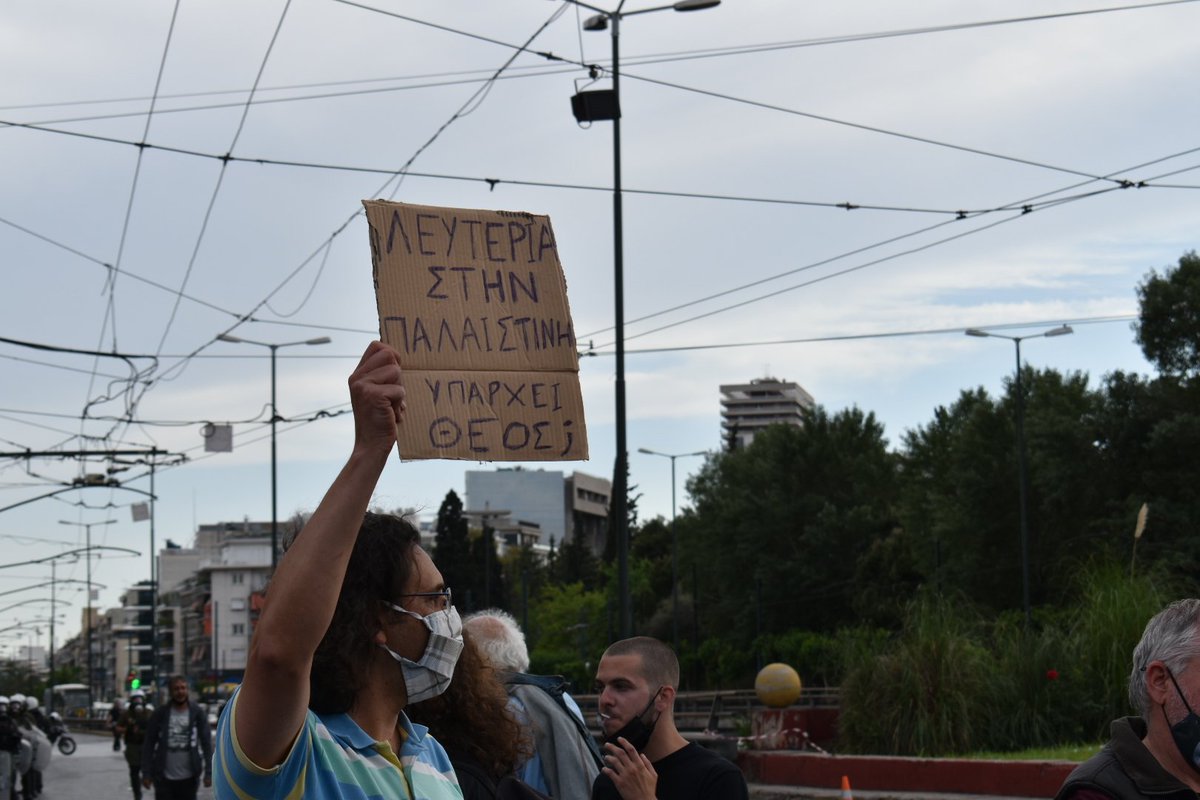 ΛΕΥΤΕΡΙΑ
ΣΤΗΝ
ΠΑΛΑΙΣΤΙΝΗ
ΥΠΑΡΧΕΙ
ΘΕΟΣ;